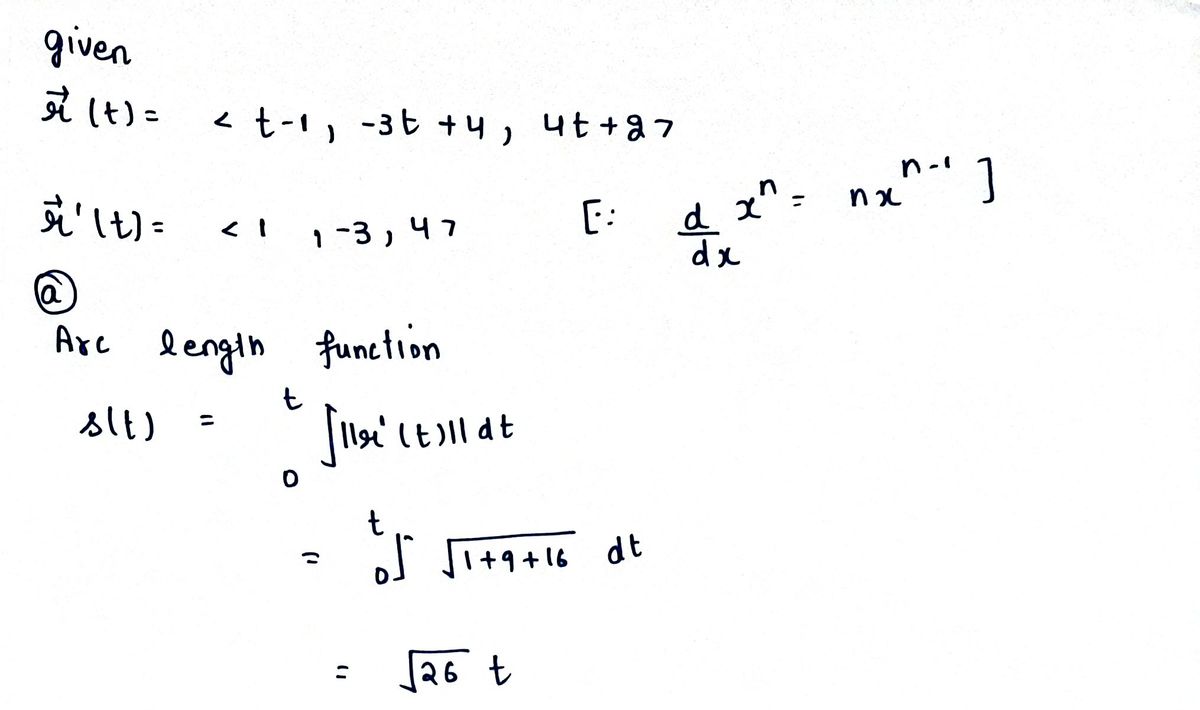 given
r⃗ (t) = < t-1, -3t +4, 4t+2 >
r⃗'(t) = < 1, -3, 4 > [∵ d/dx x^n = nx^(n-1) ]
ⓐ
Arc length function
s(t) = ∫₀ᵗ ||r'(t)|| dt
= ₀∫ᵗ √(1+9+16) dt
= √26 t